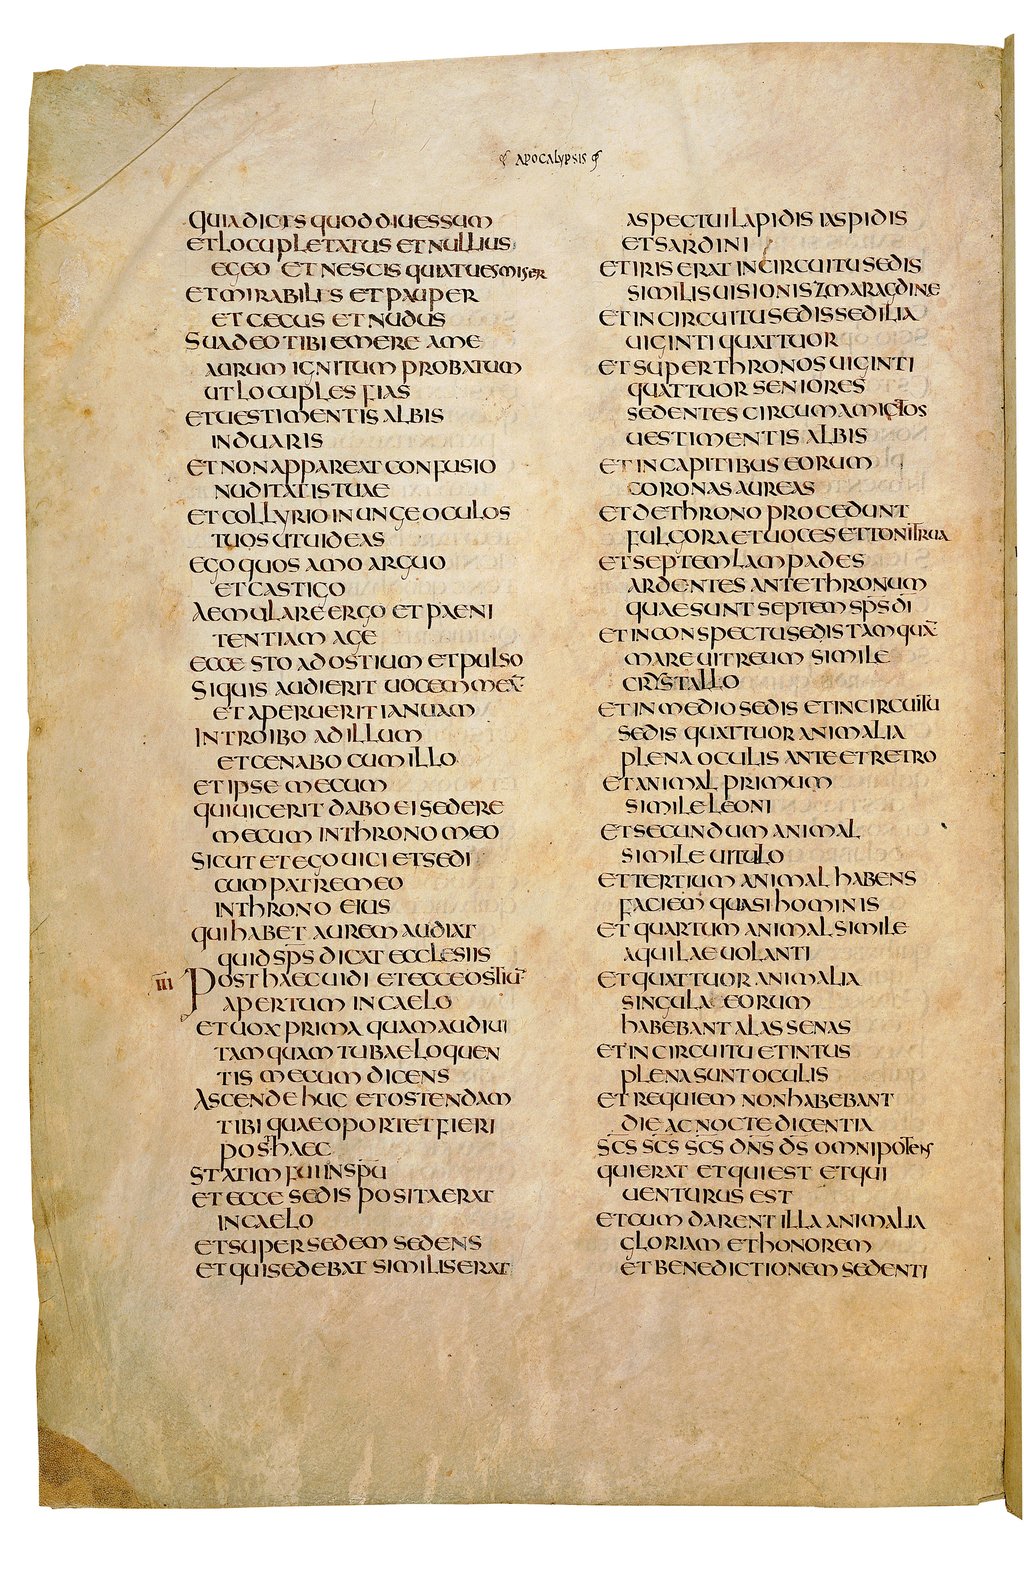 APOCALYPSIS
QUIA DICIS QUOD DIUES SUM
ET LOCUPLETATUS ET NULLIUS
EGEO ET NESCIS QUIA TU ES MISER
ET MIRABILIS ET PAUPER
ET CECUS ET NUDUS
SUADEO TIBI EMERE A ME
AURUM IGNITUM PROBATUM
UT LOCUPLES FIAS
ET UESTIMENTIS ALBIS
INDUARIS
ET NON APPAREAT CONFUSIO
NUDITATIS TUAE
ET COLLYRIO INUNGE OCULOS
TUOS UT UIDEAS
EGO QUOS AMO ARGUO
ET CASTIGO
AEMULARE ERGO ET PAENI
TENTIAM AGE
ECCE STO AD OSTIUM ET PULSO
SI QUIS AUDIERIT UOCEM MEĀ
ET APERUERIT IANUAM
INTROIBO AD ILLUM
ET CENABO CUM ILLO
ET IPSE MECUM
QUI UICERIT DABO EI SEDERE
MECUM IN THRONO MEO
SICUT ET EGO UICI ET SEDI
CUM PATRE MEO
IN THRONO EIUS
QUI HABET AUREM AUDIAT
QUID SP̄S DICAT ECCLESIIS
IIII POST HAEC UIDI ET ECCE OSTIŪ
APERTUM IN CAELO
ET UOX PRIMA QUAM AUDIUI
TAMQUAM TUBAE LOQUEN
TIS MECUM DICENS
ASCENDE HUC ET OSTENDAM
TIBI QUAE OPORTET FIERI
POST HAEC
STATIM FUI IN SPŪ
ET ECCE SEDIS POSITA ERAT
IN CAELO
ET SUPER SEDEM SEDENS
ET QUI SEDEBAT SIMILIS ERAT
ASPECTUI LAPIDIS IASPIDIS
ET SARDINI
ET IRIS ERAT IN CIRCUITU SEDIS
SIMILIS UISIONI ZMARAGDINE
ET IN CIRCUITU SEDIS SEDILIA
UIGINTI QUATTUOR
ET SUPER THRONOS UIGINTI
QUATTUOR SENIORES
SEDENTES CIRCUMAMICTOS
UESTIMENTIS ALBIS
ET IN CAPITIBUS EORUM
CORONAS AUREAS
ET DE THRONO PROCEDUNT
FULGORA ET UOCES ET TONITRUA
ET SEPTEM LAMPADES
ARDENTES ANTE THRONUM
QUAE SUNT SEPTEM SP̄S D̄I
ET IN CONSPECTU SEDIS TAMQUĀ
MARE UITREUM SIMILE
CRYSTALLO
ET IN MEDIO SEDIS ET IN CIRCUITU
SEDIS QUATTUOR ANIMALIA
PLENA OCULIS ANTE ET RETRO
ET ANIMAL PRIMUM
SIMILE LEONI
ET SECUNDUM ANIMAL
SIMILE UITULO
ET TERTIUM ANIMAL HABENS
FACIEM QUASI HOMINIS
ET QUARTUM ANIMAL SIMILE
AQUILAE UOLANTI
ET QUATTUOR ANIMALIA
SINGULA EORUM
HABEBANT ALAS SENAS
ET IN CIRCUITU ET INTUS
PLENA SUNT OCULIS
ET REQUIEM NON HABEBANT
DIE AC NOCTE DICENTIA
SC̄S SC̄S SC̄S DN̄S D̄S OMNIPOTENS
QUI ERAT ET QUI EST ET QUI
UENTURUS EST
ET CUM DARENT ILLA ANIMALIA
GLORIAM ET HONOREM
ET BENEDICTIONEM SEDENTI